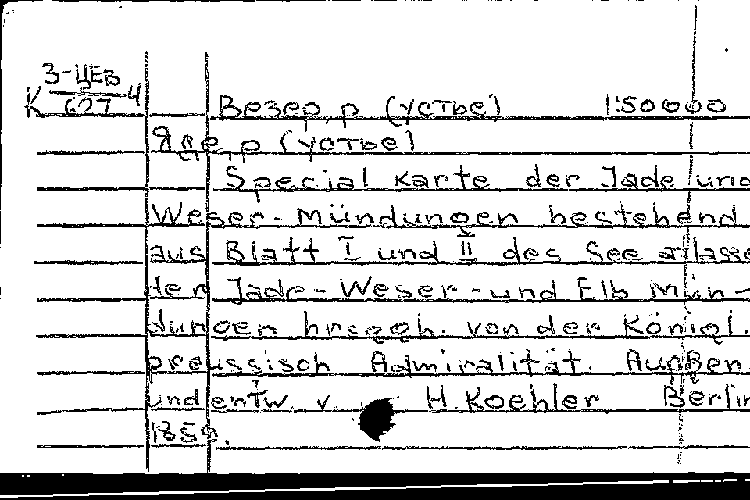 3-ЦЕВ
К 627 4
Везер, р (устье) 1:50000
Яде, р (устье)
Special Karte der Jade und
Weser-Mündungen bestehend
aus Blatt I und II des See atlasse
der Jade-Weser-und Elb Mün-
dungen hrsggh. von der Königl.
preussisch Admiralität.
und entw. v. H. Koehler Berlin
1859.